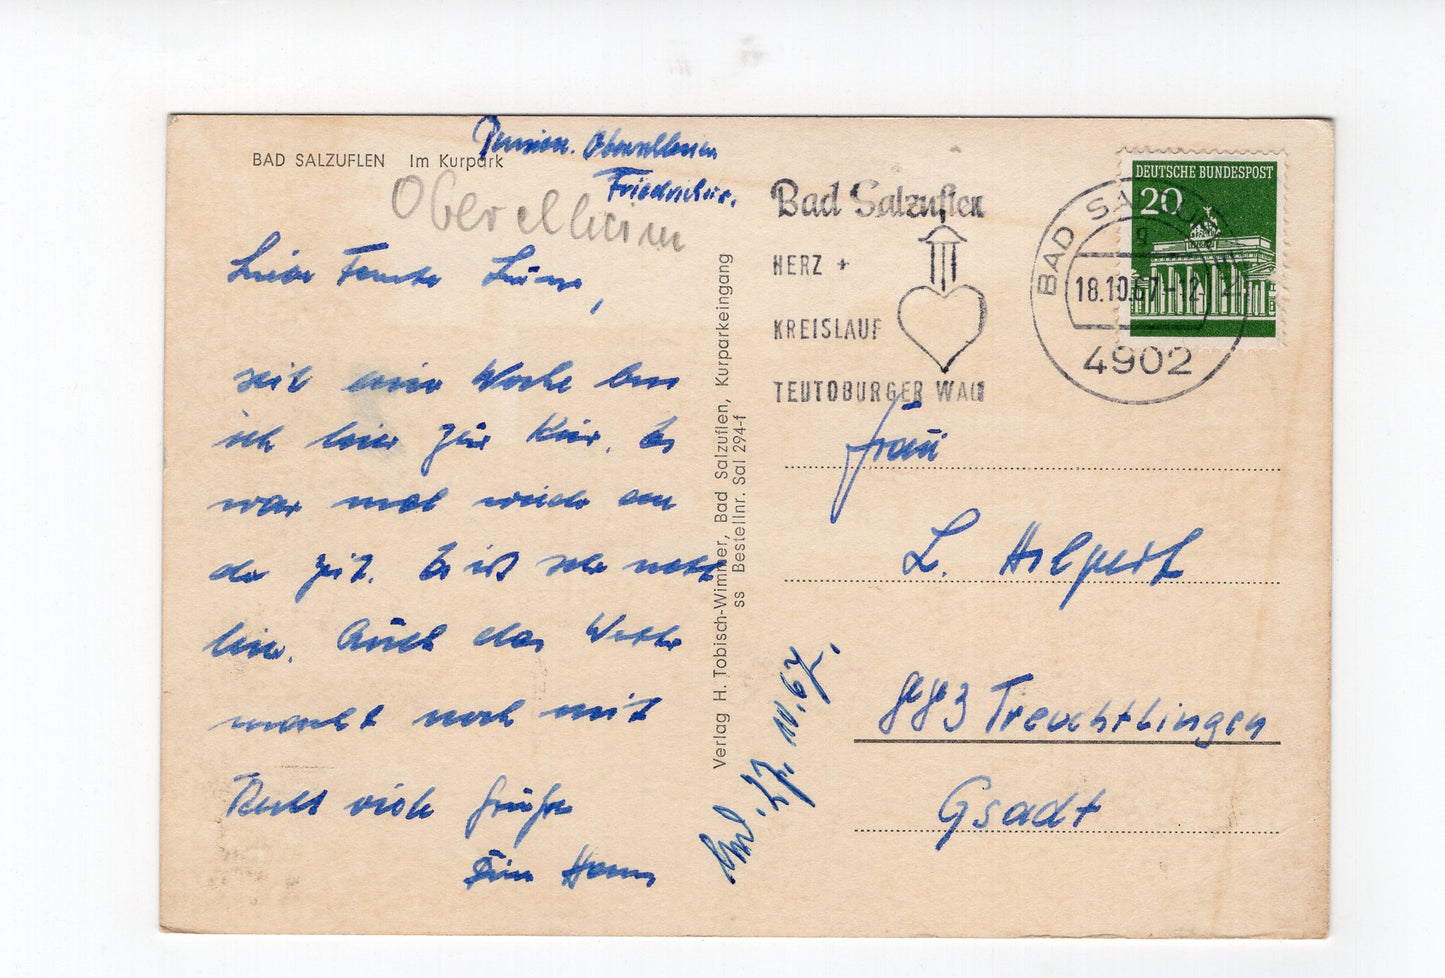 BAD SALZUFLEN Im Kurpark
Pension.
Friedrichstr.
Liebe Tante
seit eine Woche bin
ich hier zur Kur. Es
war mal wieder an
der Zeit. Es ist sehr nett
hier. Auch das Wetter
macht noch mit
Recht viele Grüße
Verlag H. Tobisch-Wimmer, Bad Salzuflen, Kurparkeingang
ss Bestellnr. Sal 294-f
27. 10. 67.
Bad Salzuflen
HERZ +
KREISLAUF
TEUTOBURGER WALD
DEUTSCHE BUNDESPOST
20
BAD SALZUFLEN
g
18.10.67-12
4902
Frau
L. Hilpert
883 Treuchtlingen
Gsadt